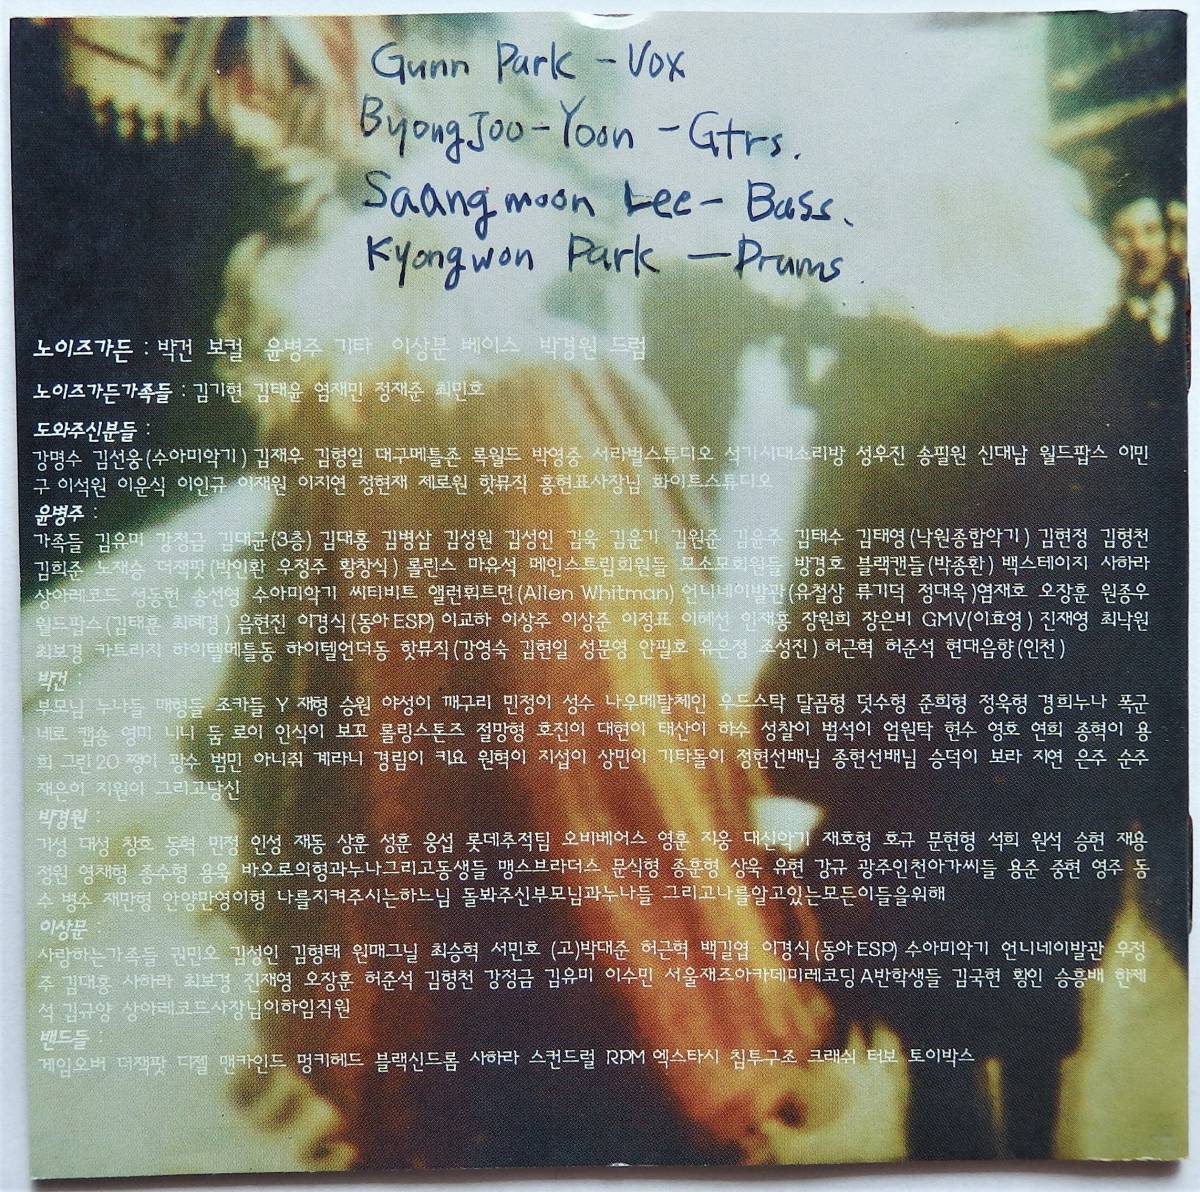 Gunn Park - Vox
ByongJoo-Yoon - Gtrs.
Saangmoon Lee - Bass.
Kyongwon Park — Drums
노이즈가든 : 박건 보컬 윤병주 기타 이상문 베이스 박경원 드럼
노이즈가든가족들 : 김기현 김태윤 염재민 정재준 최민호
도와주신분들 :
강명수 김선웅(수아미악기) 김재우 김형일 대구메틀존 록월드 박영중 서라벌스튜디오 석기시대소리방 성우진 송필원 신대남 월드팝스 이민
구 이석원 이운식 이인규 이재원 이지연 정현재 제로원 핫뮤직 홍현표사장님 화이트스튜디오
윤병주 :
가족들 김유미 강정금 김대균(3층) 김대홍 김병삼 김성원 김성인 김욱 김윤기 김원준 김윤주 김태수 김태영(낙원종합악기) 김현정 김형천
김희준 노재승 더잭팟(박인환 우정주 황창식) 롤린스 마유석 메인스트림회원들 모소모회원들 방경호 블랙캔들(박종환) 백스테이지 사하라
상아레코드 성동헌 송선영 수아미악기 씨티비트 앨런휘트먼(Allen Whitman) 언니네이발관(유철상 류기덕 정대욱) 염재호 오장훈 원종우
월드팝스(김태훈 최혜경) 음현진 이경식(동아ESP) 이교하 이상주 이상준 이정표 이혜선 인재홍 장원희 장은비 GMV(이효영) 진재영 최낙원
최보경 카트리지 하이텔메틀동 하이텔언더동 핫뮤직(강영숙 김현일 성문영 안필호 유은정 조성진) 허근혁 허준석 현대음향(인천)
박건 :
부모님 누나들 매형들 조카들 Y 재형 승원 야성이 깨구리 민정이 성수 나우메탈체인 우드스탁 달곰형 덧수형 준희형 정욱형 경희누나 폭군
네로 캡숑 영미 니니 둠 로이 인식이 보꼬 롤링스톤즈 절망형 호진이 대현이 태산이 하수 성찰이 범석이 엄원탁 현수 영호 연희 종혁이 용
희 그린20 쨍이 광수 범민 아니줘 계라니 경림이 키요 원혁이 지섭이 상민이 기타돌이 정현선배님 종현선배님 승덕이 보라 지연 은주 순주
재은이 지원이 그리고당신
박경원 :
가성 대성 창호 동혁 민정 인성 재동 상훈 성훈 웅섭 롯데추적팀 오비베어스 영훈 지웅 대신악기 재호형 호규 문현형 석희 원석 승현 재용
정원 영채형 종수형 용욱 바오로의형과누나그리고동생들 맹스브라더스 문식형 종훈형 상욱 유현 강규 광주인천아가씨들 용준 중현 영주 동
수 병수 재만형 안양만영이형 나를지켜주시는하느님 돌봐주신부모님과누나들 그리고나를알고있는모든이들을위해
이상문 :
사랑하는가족들 권민오 김성인 김형태 원매그닐 최승혁 서민호 (고)박대준 허근혁 백길엽 이경식(동아ESP) 수아미악기 언니네이발관 우정
주 김대홍 사하라 최보경 진재영 오장훈 허준석 김형천 강정금 김유미 이수민 서울재즈아카데미레코딩A반학생들 김국현 황인 승흥배 한제
석 김규양 상아레코드사장님이하임직원
밴드들 :
게임오버 더잭팟 디젤 맨카인드 멍키헤드 블랙신드롬 사하라 스컨드럴 RPM 엑스타시 침투구조 크래쉬 터보 토이박스